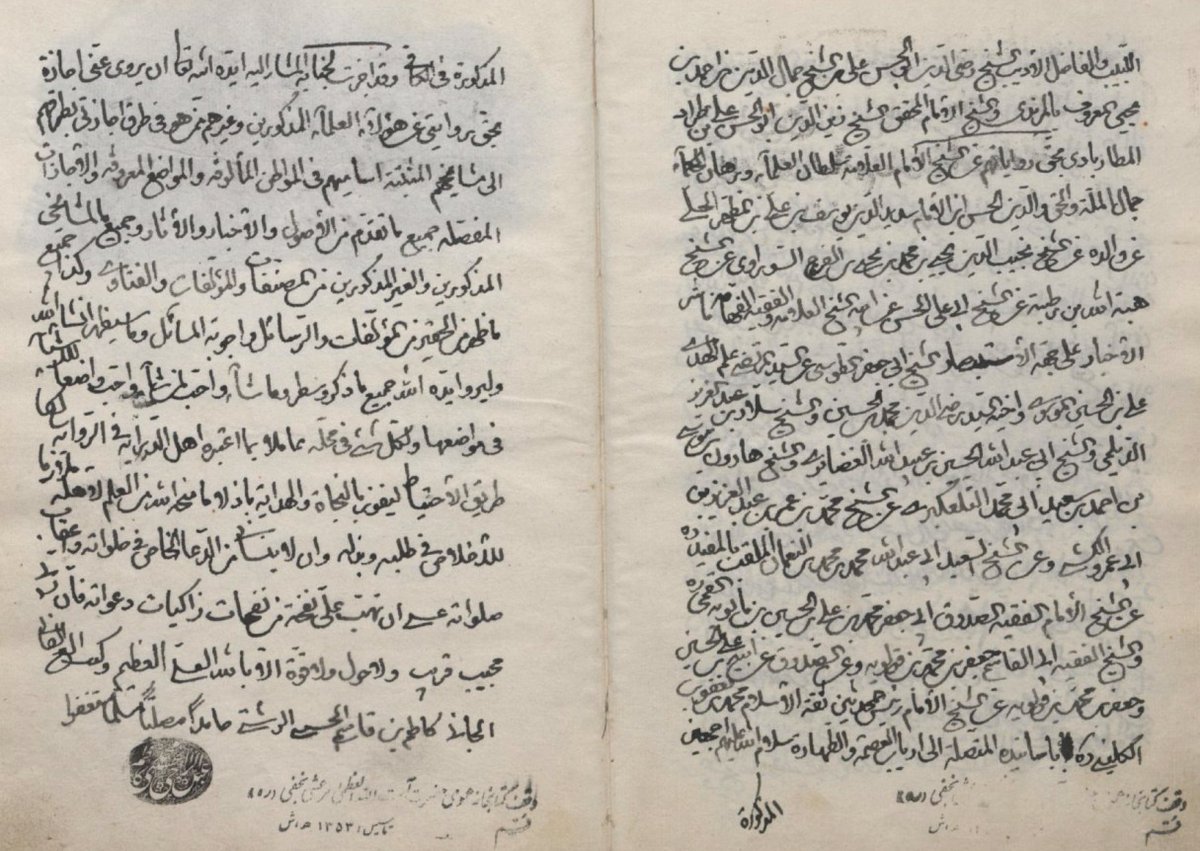 اللبيب والفاضل الاديب الشيخ رضي الدين ابي الحسن علي بن الشيخ جمال الدين بن احمد بن
يحيى المعروف بالمزيدي والشيخ الامام المحقق الشيخ زين الدين ابو الحسن علي بن طراد
المطاربادي بحق رواياتهم عن الشيخ الامام العلامة سلطان العلماء وبرهان الحكماء
جمال الملة والحق والدين الحسن ابن الامام سديد الدين يوسف بن علي بن المطهر الحلي
عن والده عن الشيخ نجيب الدين يحيى بن محمد بن يحيى بن الفرج السوراوي عن الشيخ
هبة الله بن رطبة عن الشيخ ابي علي الحسن عن ابيه الشيخ العلامة وفقيه الفقهاء ناشر
الاخبار على جهة الاستبصار الشيخ ابي جعفر الطوسي عن السيد المرتضى علم الهدى
علي بن الحسين الموسوي واخيه السيد رضي الدين محمد بن الحسين والشيخ سلار بن عبد العزيز
الديلمي والشيخ ابي عبد الله الحسين بن عبيد الله الغضائري والشيخ هارون بن موسى
بن احمد بن سعيد ابي محمد التلعكبري عن الشيخ محمد بن عمر بن عبد العزيز
ابي عمرو الكشي وعن الشيخ السعيد ابي عبد الله محمد بن محمد بن النعمان الملقب بالمفيد
عن الشيخ الأمام الفقيه الصدوق ابي جعفر محمد بن علي بن الحسين بن بابويه القمي
والشيخ الفقيه ابي القاسم جعفر بن محمد بن قولويه وعن الصدوق عن ابيه علي بن الحسين
وجعفر بن محمد بن قولويه عن الشيخ الأمام رئيس المحدثين ثقة الاسلام محمد بن يعقوب
الكليني باسانيده المتصلة الى ارباب العصمة والطهارة سلام الله عليهم اجمعين
المذكورة
المذكورة في الكافي وقد اجزت لجناب المشار اليه ايده الله تعا ان يروي عني اجازة
بحق روايتي عن هؤلاء العلماء المذكورين وغيرهم ممن هم في طرق اجازتي بطرقهم
الى مشايخهم المثبتة اساميهم في المواطن المألوفة والمواضع المعروفة والاجازات
المفصلة جميع ما تقدم من الأصول والاخبار والأثار وجميع ما لمشايخي
المذكورين والغير المذكورين من المصنفات والمؤلفات والفتاوى وكذا جميع
ما ظهر من الحقير من المؤلفات والرسائل واجوبة المسائل وما سيظهر انشاء الله
وليرو ايده الله جميع ما ذكر وسطر وما شاء واحب لمن شاء واحب واضعا
في مواضعها ولكل شئ في محله عاملا بما اعتبره اهل الدراية في الرواية
طريق الأحتياط ليفوز بالنجاة والهداية باذلا ما منحه الله من العلم لاهله
للأخلاص في طلبه وبذله وان لا ينساني من الدعا الخاص في خلواته واعقاب
صلواته عسى ان تهب علي نفحة من نفحات زاكيات دعواته فان الله
مجيب قريب ولا حول ولا قوة الا بالله العلي العظيم وكتب
الجاني كاظم بن قاسم الحسيني الرشتي حامدا مصليا مسلما مستغفرا
وقف كتابخانه عمومى حضرت آيت الله العظمى مرعشى نجفى
قم
تاسيس ۱۳۵۳ ه‍ ش